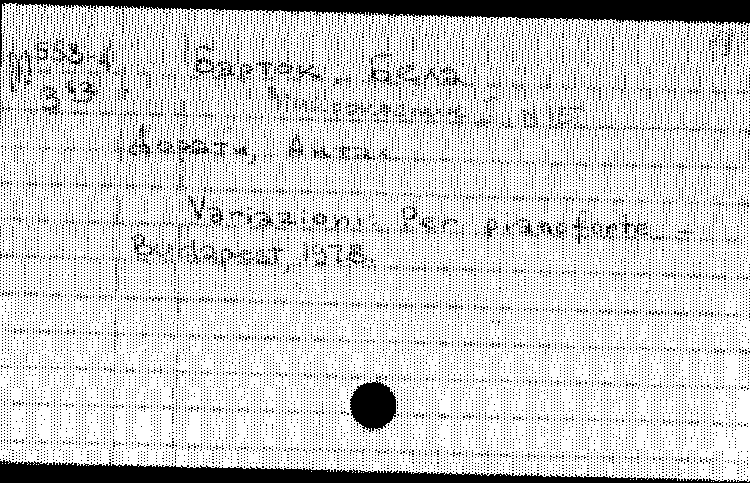 М 553-4 Барток, Бела
39
Дорати, Антал.
Variazioni Per pianoforte. -
Budapest, 1978.